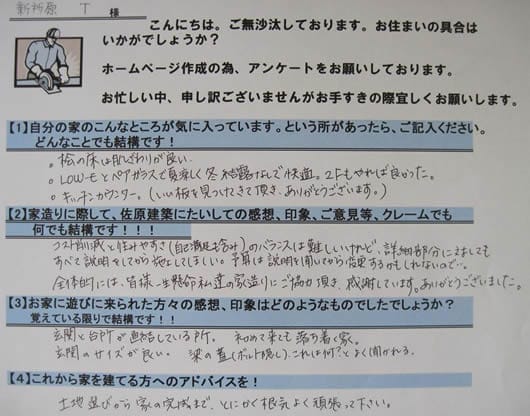 新祈原 T 様
こんにちは。ご無沙汰しております。お住まいの具合は
いかがでしょうか？
ホームページ作成の為、アンケートをお願いしております。
お忙しい中、申し訳ございませんがお手すきの際宜しくお願いします。
【1】自分の家のこんなところが気に入っています。という所があったら、ご記入ください。
どんなことでも結構です！
。桧の床は肌ざわりが良い。
。LOW-EとペアガラスでË夏涼しく冬結露なしで快適。2Fもやれば良かった。
。キッチンカウンター。（いい板を見つけてきて頂き、ありがとうございます。）
【2】家造りに際して、佐原建築にたいしての感想、印象、ご意見等、クレームでも
何でも結構です！！！
コスト削減と住みやすさ（自己満足も含み）のバランスは難しいけれど、詳細部分に対しても
すべて説明をしてから施工してほしい。予算は説明を聞いてから変更するかもしれないので…。
全体的には、皆様一生懸命私達の家造りにご協力頂き、感謝しています。ありがとうございました。
【3】お家に遊びに来られた方々の感想、印象はどのようなものでしたでしょうか？
覚えている限りで結構です！！
玄関と台所が直結している所。 初めて来ても落ち着く家。
玄関のサイズが良い。 梁の蓋（ボルト隠し）、これは何？とよく聞かれる。
【4】これから家を建てる方へのアドバイスを！
土地選びから家の完成まで、とにかく根気よく頑張って下さい。